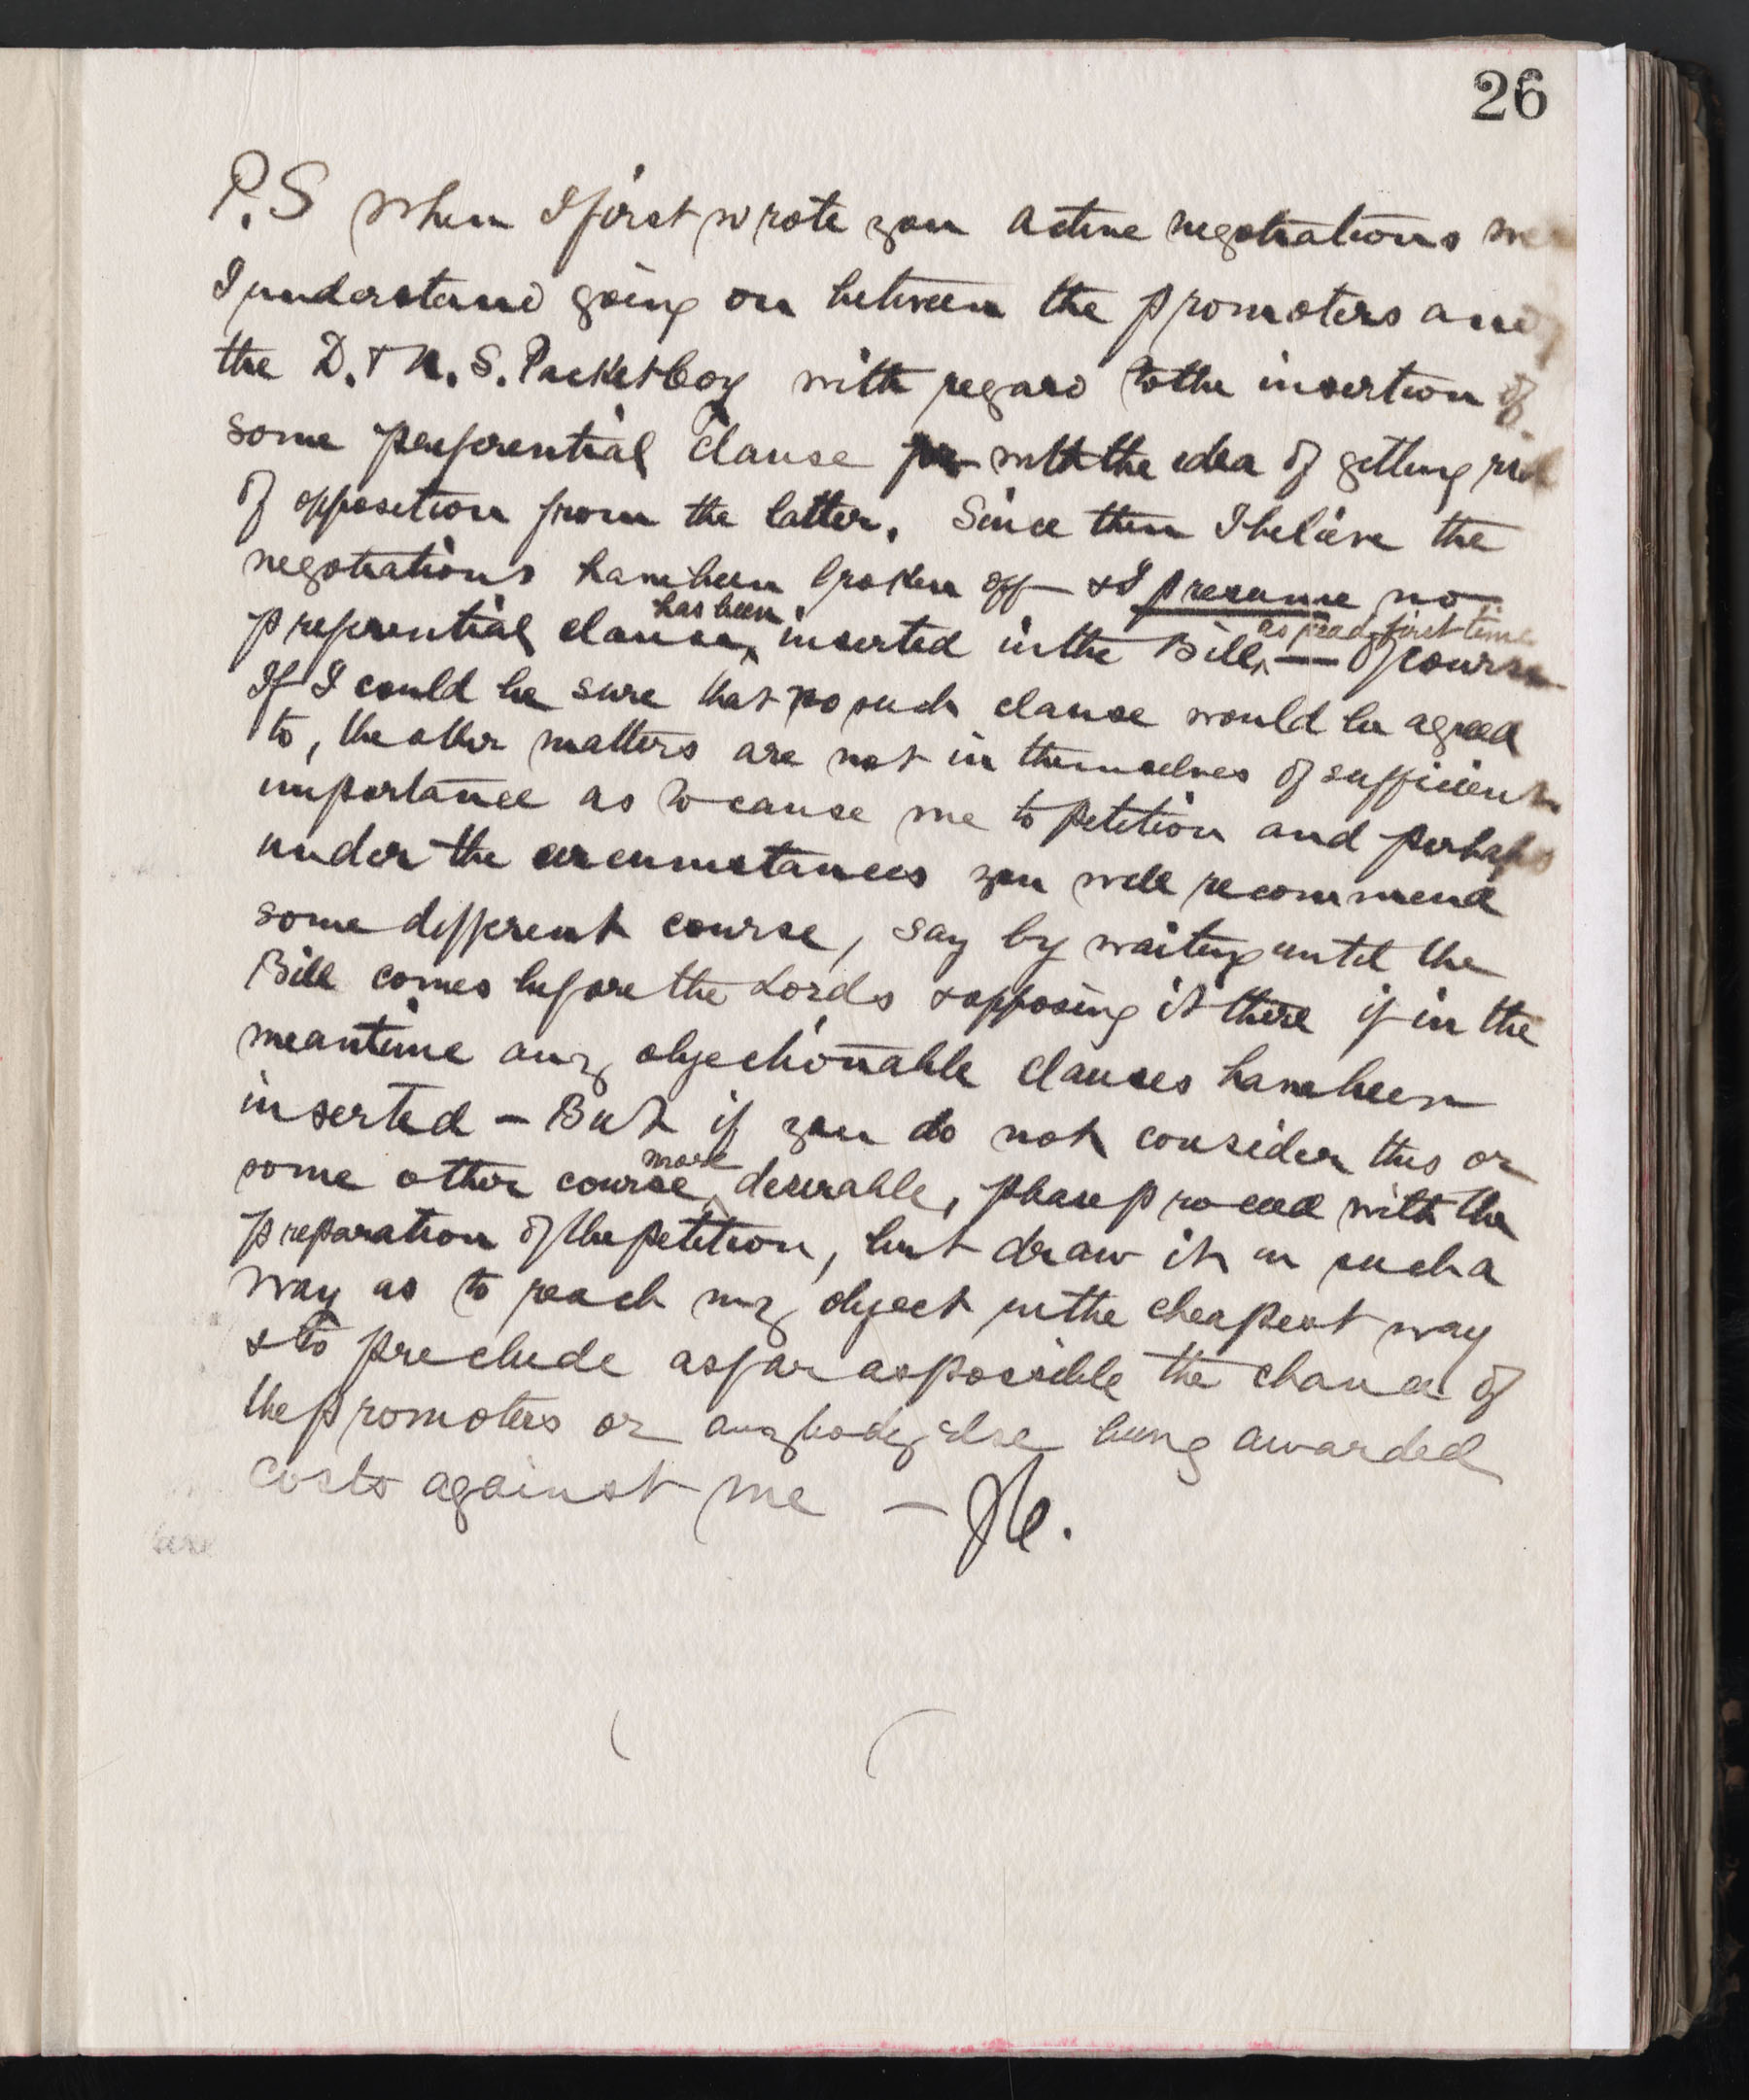 26
P.S When I first wrote you active negotiations
I understand going on between the promoters and
the D. & N. S. Packet Coy with regard to the insertion of
some preferential clause with the idea of getting rid
of opposition from the latter. Since then I believe the
negotiations have been broken off & I presume no
has been as read first time
preferential clause inserted in the Bill — Of course
If I could be sure that no such clause would be agreed
to, the other matters are not in themselves of sufficient
importance as to cause me to petition and perhaps
under the circumstances you will recommend
some different course, say by waiting until the
Bill comes before the Lords & opposing it there if in the
meantime any objectionable clauses have been
inserted - But if you do not consider this or
more
some other course desirable, please proceed with the
preparation of the petition, but draw it in such a
way as to reach my object in the cheapest way
& to preclude as far as possible the chance of
the promoters or anybody else being awarded
costs against me —